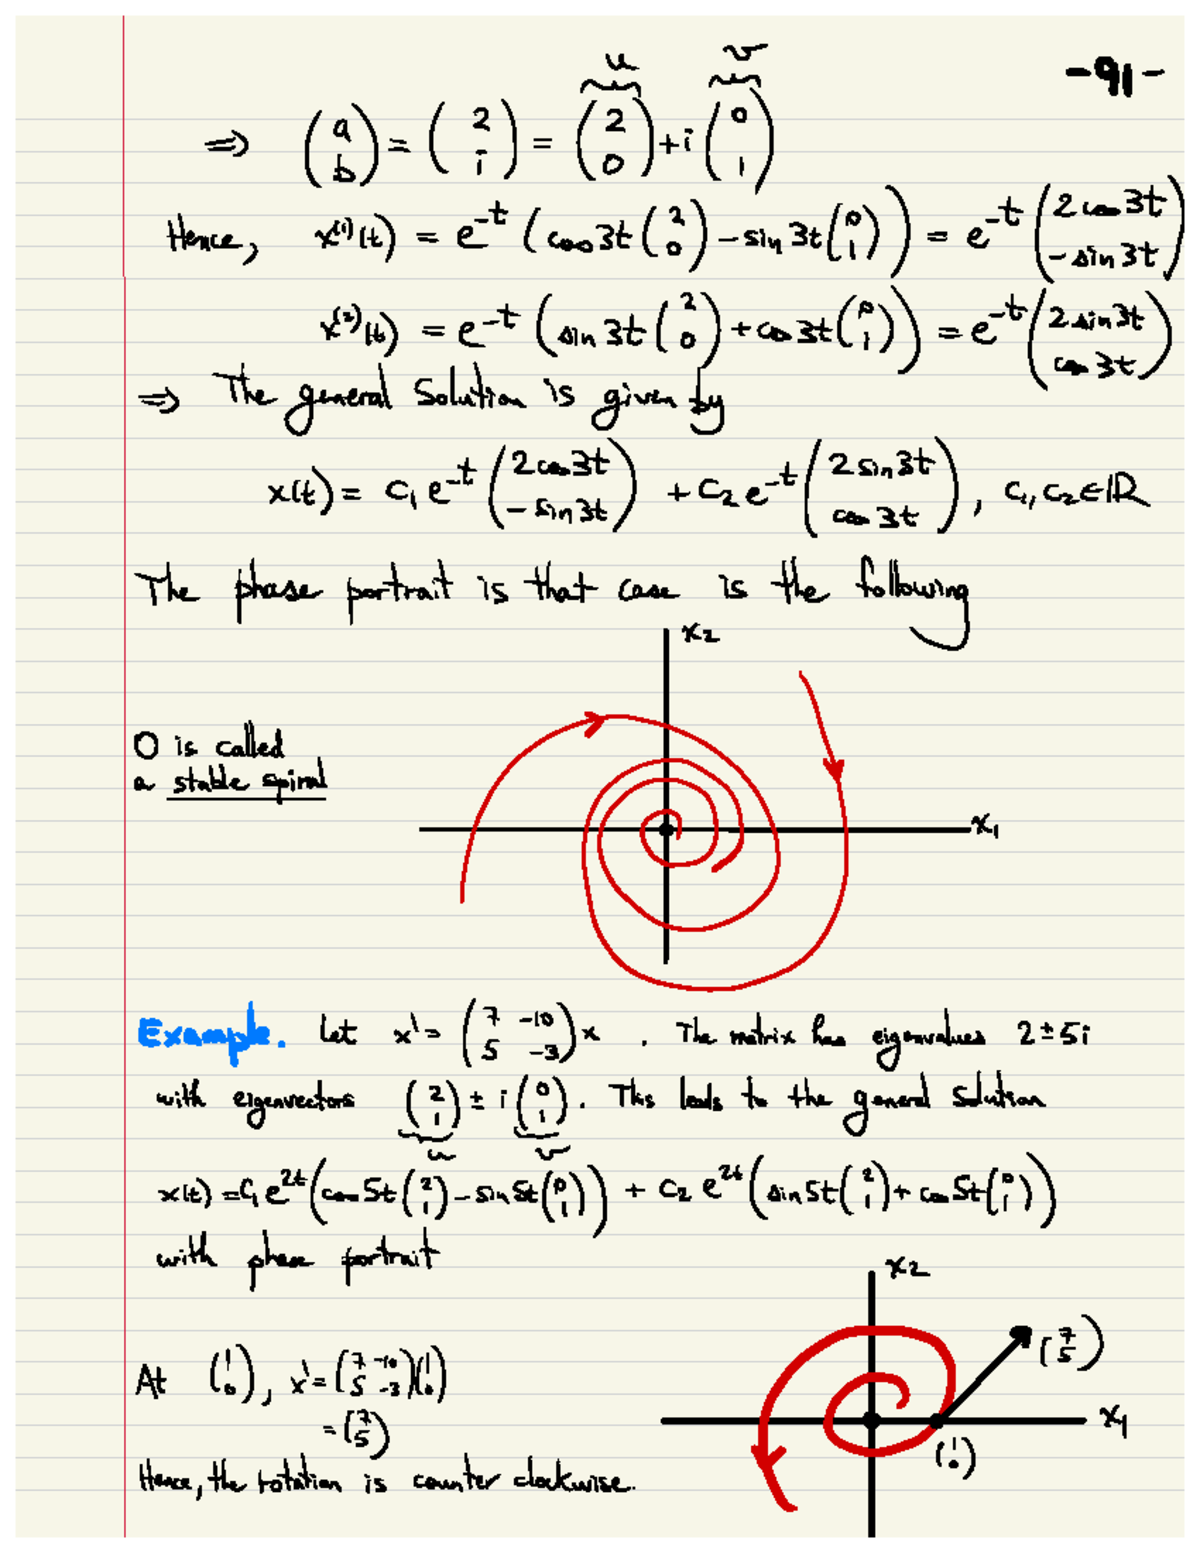 -91-
u v
⇒ (a b) = (2 i) = (2 0) + i (0 1)
Hence, x⁽¹⁾(t) = e^{-t} (cos3t (2 0) - sin 3t (0 1)) = e^{-t} (2 cos 3t - sin 3t)
x⁽²⁾(t) = e^{-t} (sin 3t (2 0) + cos 3t (0 1)) = e^{-t} (2 sin 3t cos 3t)
⇒ The general Solution is given by
x(t) = c₁ e^{-t} (2 cos 3t - sin 3t) + c₂ e^{-t} (2 sin 3t cos 3t), c₁, c₂ ∈ ℝ
The phase portrait is that case is the following
x₂
O is called
a stable spiral
x₁
Example. Let x' = (7 -10 5 -3) x . The matrix has eigenvalues 2 ± 5i
with eigenvectors (2 1) ± i (0 1). This leads to the general solution
u v
x(t) = c₁ e^{2t} (cos 5t (2 1) - sin 5t (0 1)) + c₂ e^{2t} (sin 5t (2 1) + cos 5t (0 1))
with phase portrait
x₂
(7 5)
At (1 0), x' = (7 -10 5 -3)(1 0)
x₁
= (7 5)
(1 0)
Hence, the rotation is counter clockwise.